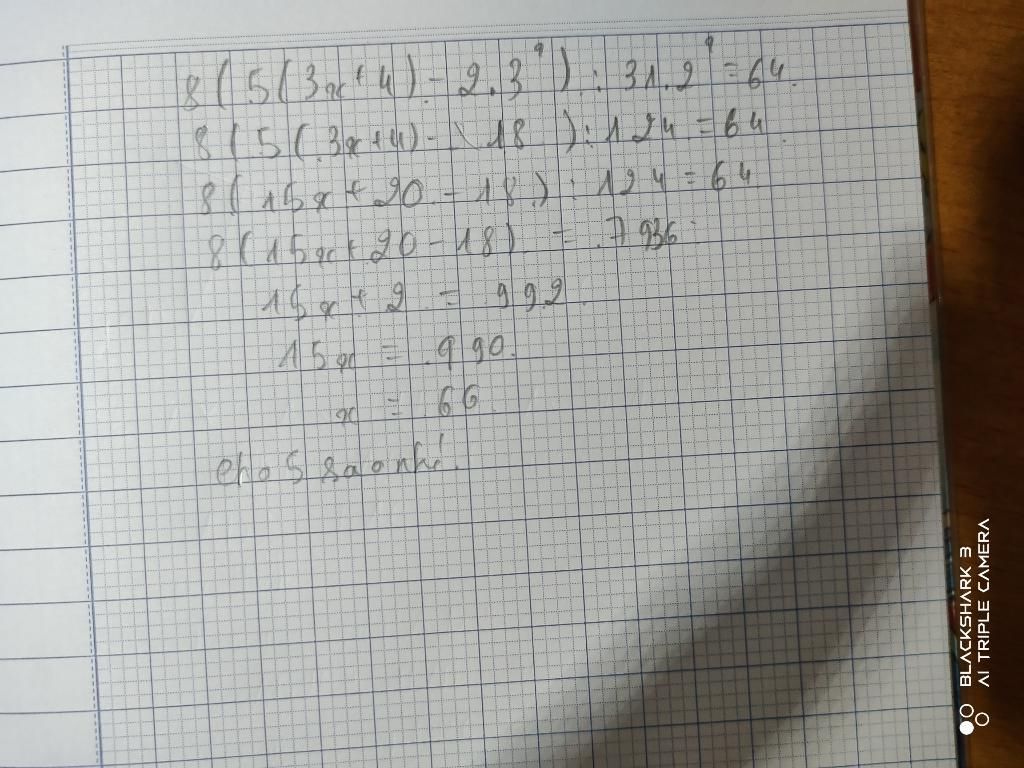 8(5(3x+4)-2.3²):31.2²=64
8(5(3x+4)-18):124=64
8(15x+20-18):124=64
8(15x+20-18)=7936
15x+2=992
15x=990
x=66
cho 5 sao nhé
BLACKSHARK 3
AI TRIPLE CAMERA